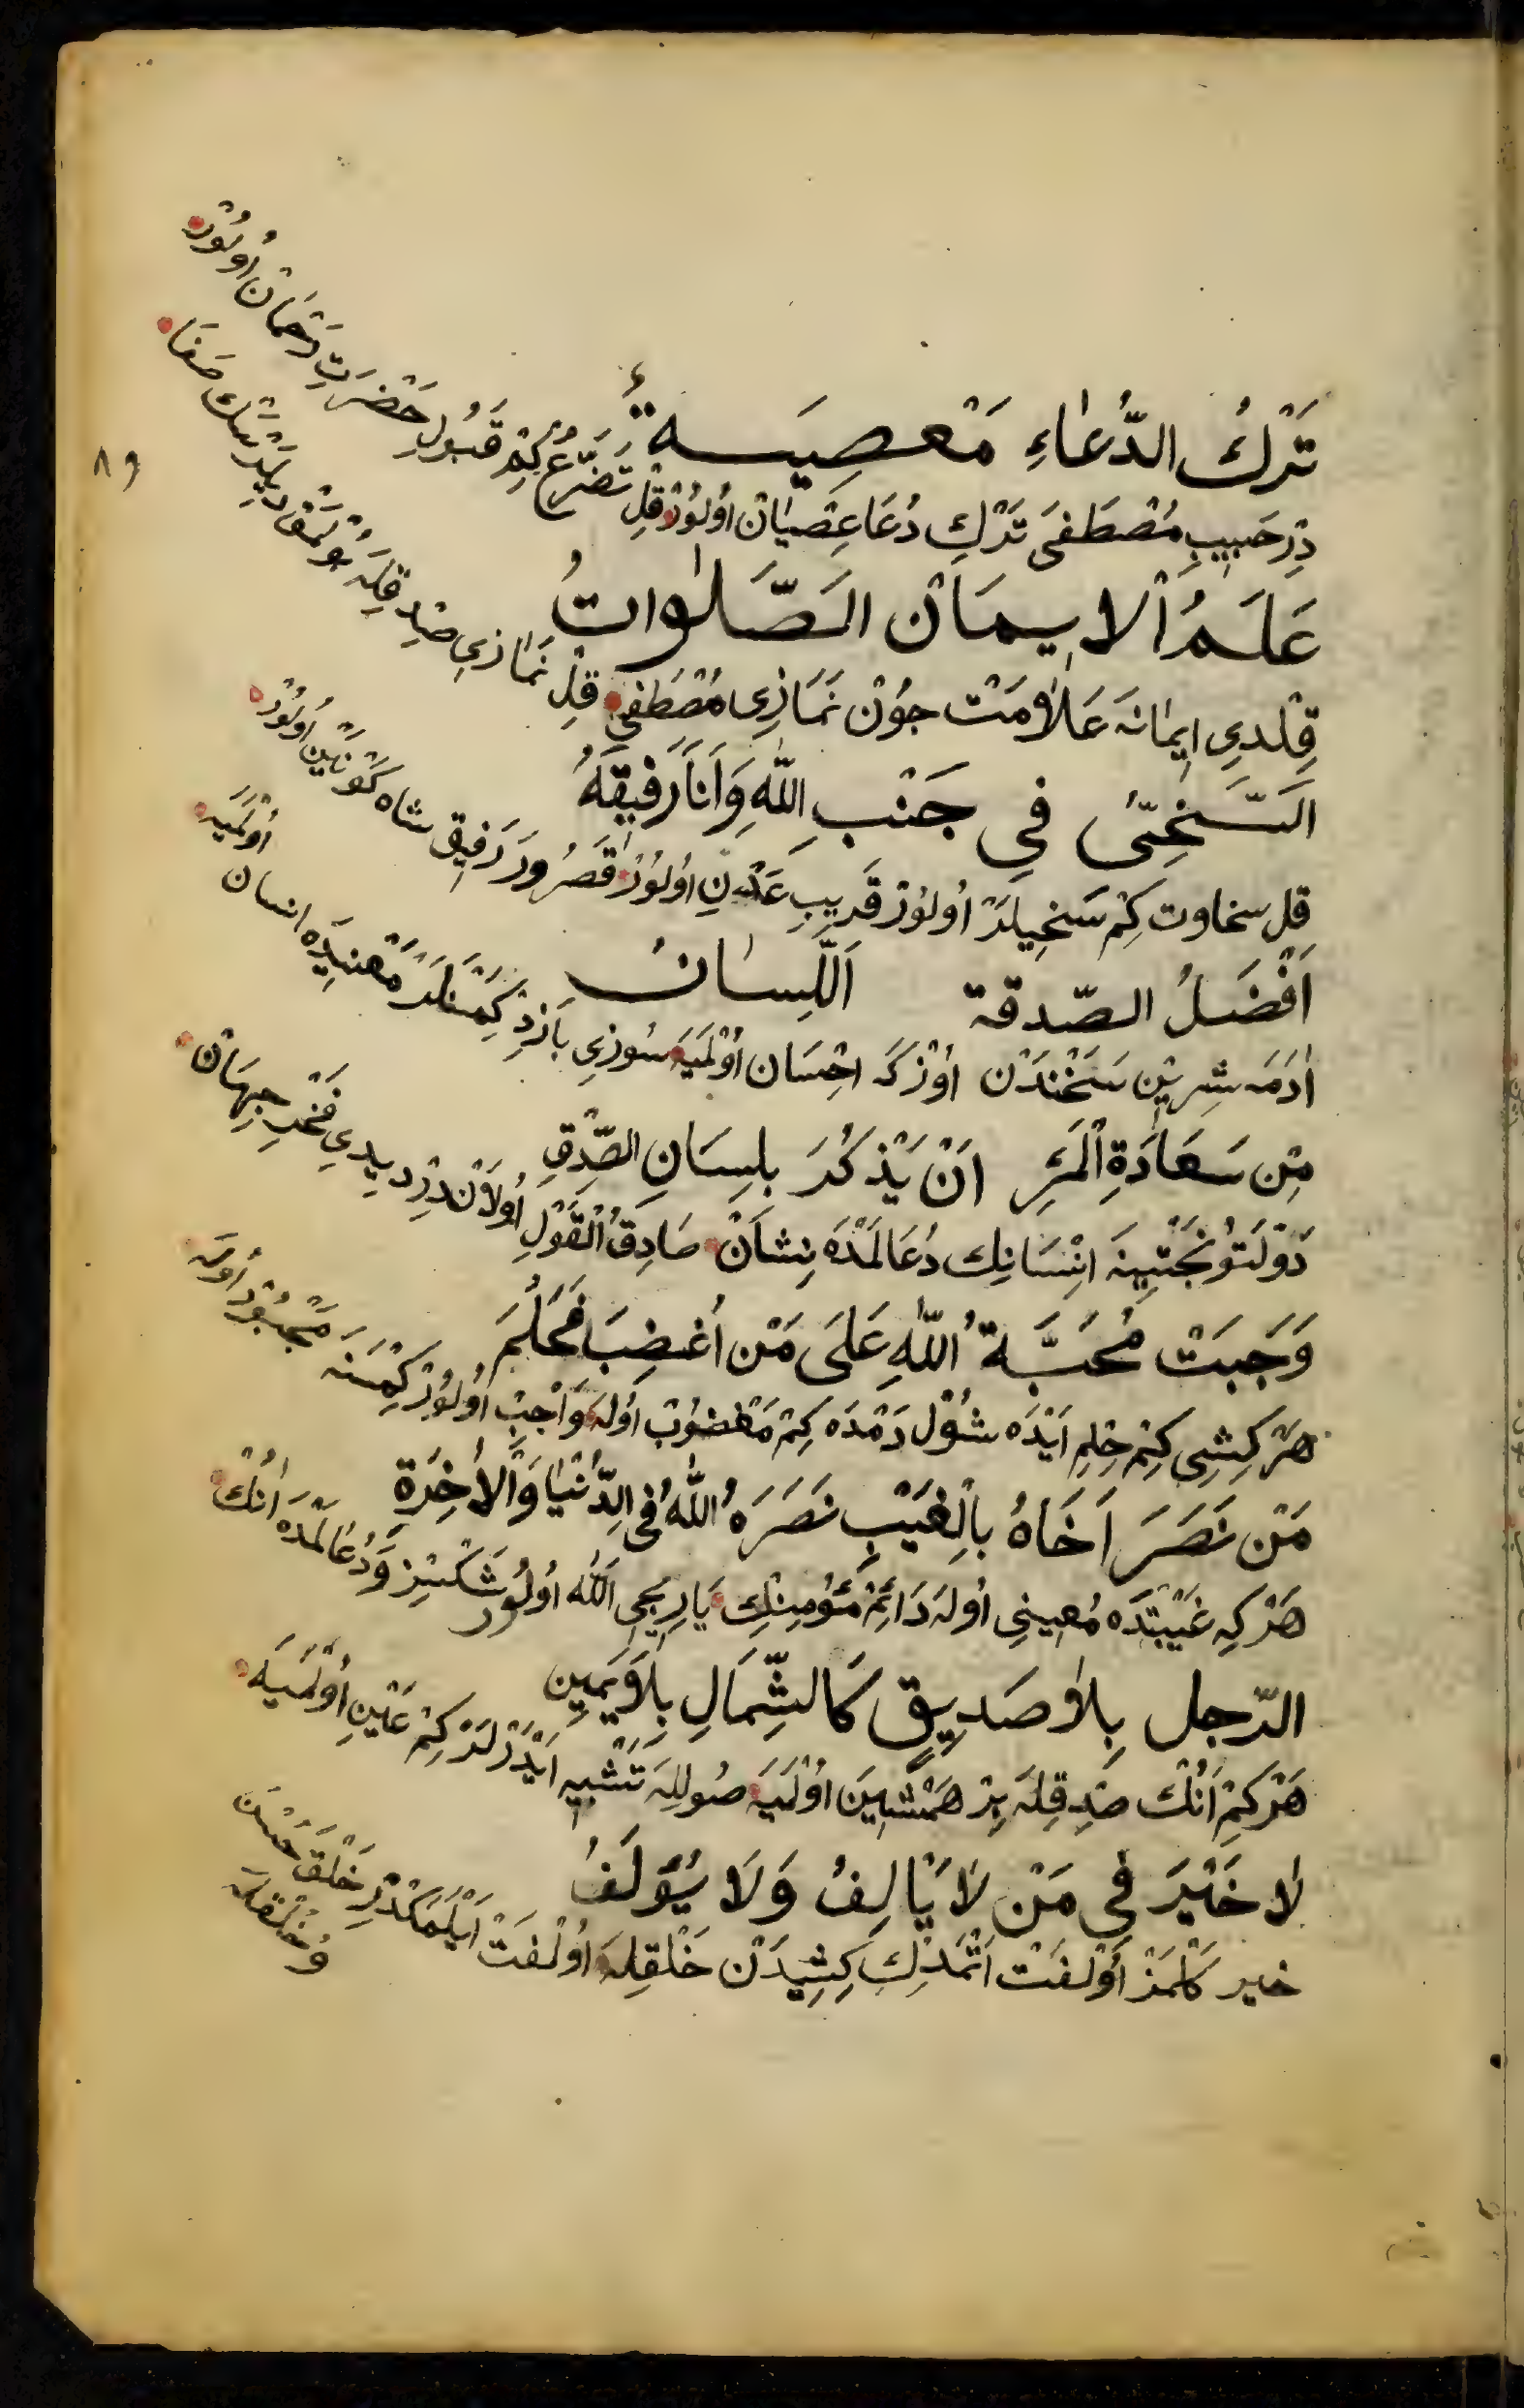 تَرْكُ الدُّعَاءِ مَعْصِيَةٌ
دِرْ حَبِيبِ مُصْطَفَى تَرْكِ دُعَا عِصْيَانْ اُولُورْ قِلْ تَضَرُّعْ كِمْ قَبُولِ حَضْرَتِ رَحْمَانْ اُولُورْ
عَلَمُ الْاِيمَانْ الصَّلٰوَاتُ
قِلْدِي اِيمَانَه عَلَامَتْ چُونْ نَمَازِي مُصْطَفَى قِلْ نَمَازِي صِدْقِلَه بُولْمَقْ دِيلَرْسَكْ صَفَا
۸۹
اَلسَّخِىُّ فِي جَنْبِ اللّٰهِ وَاَنَا رَفِيقَهُ
قِل سخاوت كِمْ سَخِيلَرْ اُولُورْ قَرِيبِ عَدْنِ اُولُورْ قَصْرُورَ رَفِيقِ شاه كَوْنَيْن اُولُورْ
اَفْضَلُ الصّدقة اَللِّسَانُ
اٰدَمَه شِرِينْ سَخَنْدَنْ اُوزْكَه اِحْسَان اُولْمَيَه سُوزِي بَارِدْ كِمْسَنَلَرْ مَعْنِيدَه انسان اُولْمَيَه
مِنْ سَعَادَةِ الْمَرِ اَنْ يَذْكُرَ بِلِسَانِ الصِّدْقِ
دَوْلَتُو بَخْتِينَه اِنْسَانِك دُعَالَمْدَه نِشَانْ صَادِقُ الْقَوْلِ اُولَانْدِرْ دِيدِي فَخْرِ جِهَانْ
وَجَبَتْ مُحَبَّةُ اللّٰهِ عَلَى مَنْ اُغْضِبَ فَحَلُمَ
هَرْ كِشِي كِمْ حِلِم اَيْدَه شُولْ دَمْدَه كِمْ مَغْضُوبْ اُولَه وَاجِبْ اُولُورْ كِمْسَنَه مَحْبُوبْ اُولَه
مَنْ نَصَرَ اَخَاهُ بِالْغَيْبِ نَصَرَهُ اللّٰهُ فِى الدُّنْيَا وَالْاٰخِرَةِ
هَرْكِه غَيْبَتْدَه مُعِينِي اُولَه دَائِمْ مُؤْمِنِكْ يَارِيجِي اَللّٰه اُولُورْ شَكْسِزْ دُعَالَمْدَه اَنُكْ
الرّجل بِلَا صَدِيقٍ كَالشِّمَالِ بِلَا يَمِينِ
هَرْ كِمْ اَنُكْ صِدْقِلَه بِرْ هَمْنِشِينَ اُولْمَيَه صُولَلِه تَشْبِيه اَيْدَرْلَرْ كِمْ عَيْنِ اُولْمَيَه
لَا خَيْرَ فِي مَنْ لَا يَاْلِفُ وَلَا يُؤْلَفُ
خير كَلْمَزْ اُولْفَتْ اَتْمَدِكْ كِشِيدَنْ خَلْقِلَه اُولْفَتْ اَيْلَمَكْدِرْ خَلْقَ حُسْن وُ خُلْقِلَه